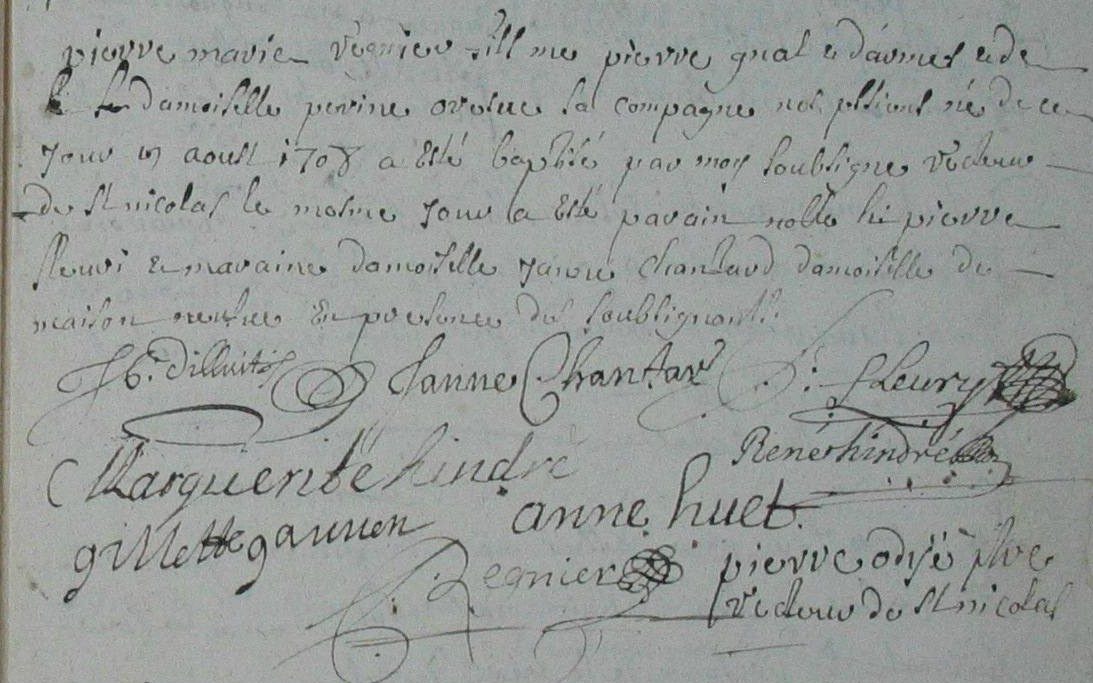 pierre marie regnier fill me pierre gnal e daumes e de
damoiselle perine oresve sa compagne nos pssiens né de ce
Jour aoust 1708 a esté baptisé par moy soubsigne recteur
de st nicolas le mesme Jour a esté parain noble hē pierre
fleuri & maraine damoiselle Janne chantard damoiselle de
maison neufve En presence des soubsignants.
Janne Chantard
fleury
Margueritte hindré
René hindré
gillette gauven
anne huet.
Regnier
pierre odyé pbre
recteur de st nicolas